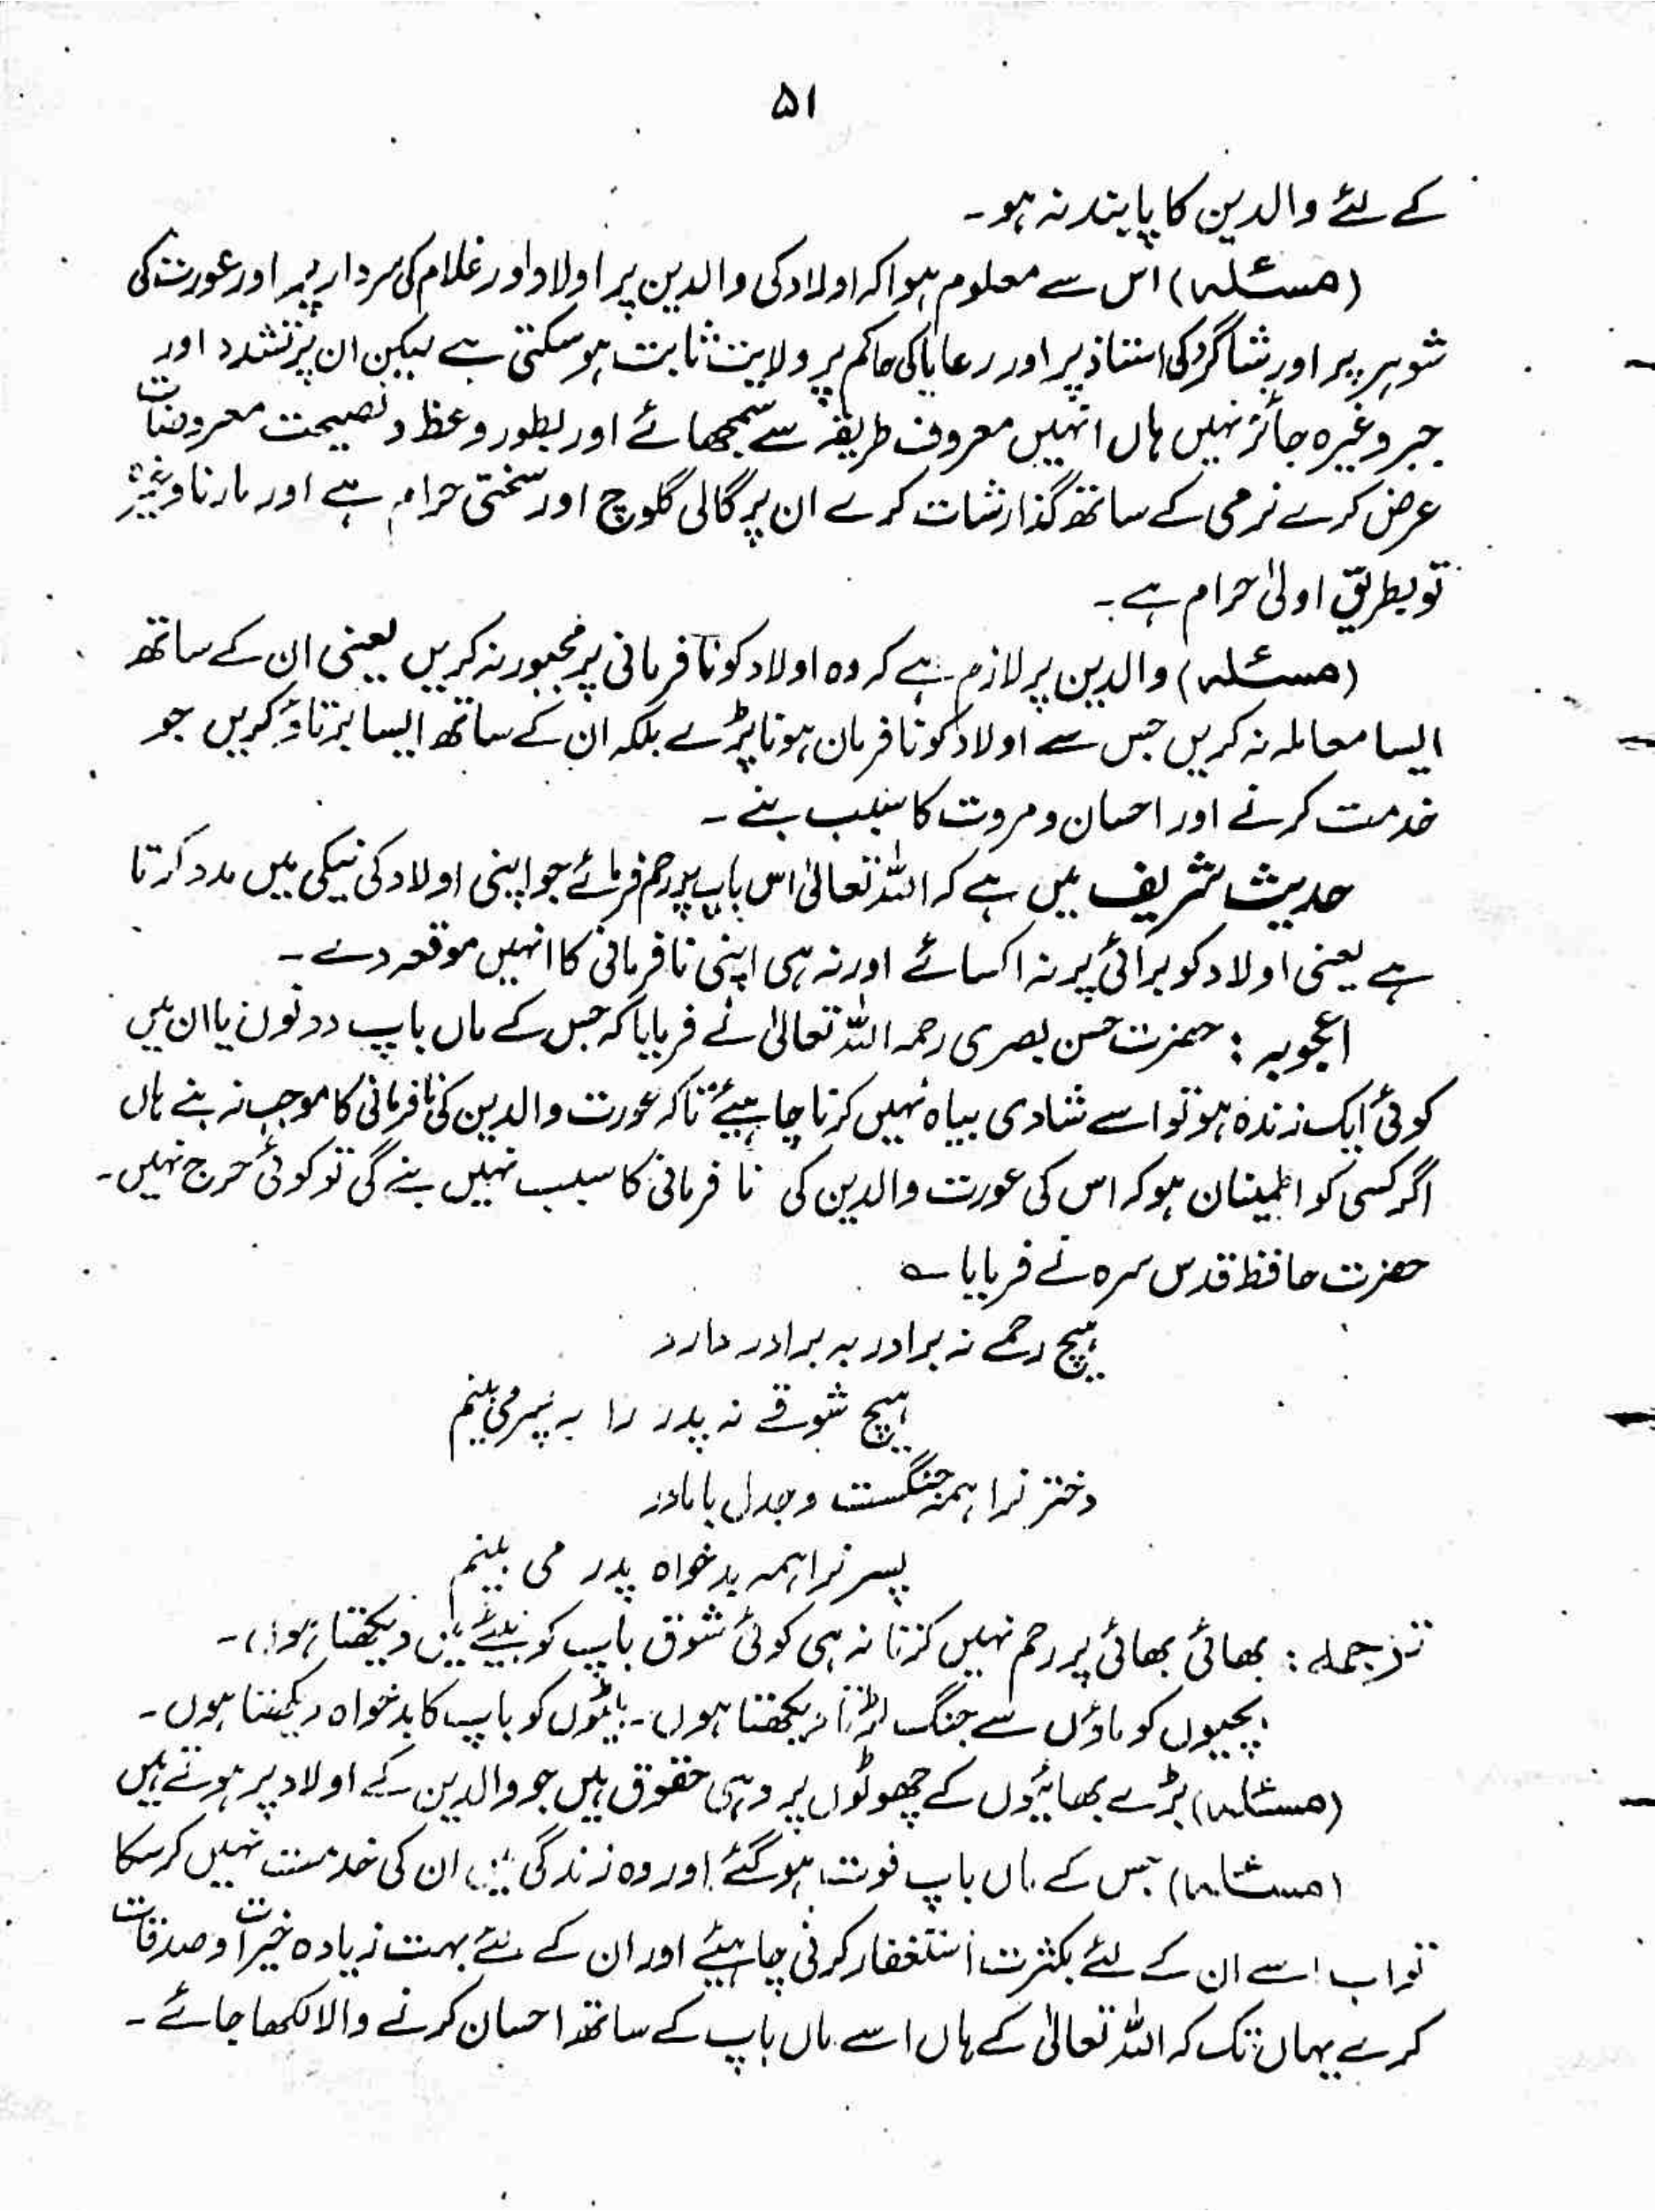 ۵۱
کے لئے والدین کا پابند نہ ہو۔
(مسئلہ) اس سے معلوم ہوا کہ اولاد کی والدین پر اولاد اور غلام کی سردار پر اور عورت کی
شوہر پر اور شاگرد کی استاذ پر اور رعایا کی حاکم پر ولایت ثابت ہو سکتی ہے لیکن ان پر تشدد اور
جبر وغیرہ جائز نہیں ہاں انہیں معروف طریقہ سے سمجھائے اور بطور وعظ و نصیحت معروضات
عرض کرے نرمی کے ساتھ گذارشات کرے ان پر گالی گلوچ اور سختی حرام ہے اور مارنا وغیرہ
تو بطریق اولیٰ حرام ہے۔
(مسئلہ) والدین پر لازم ہے کہ وہ اولاد کو نافرمانی پر مجبور نہ کریں یعنی ان کے ساتھ
ایسا معاملہ نہ کریں جس سے اولاد کو نافرمان ہونا پڑے بلکہ ان کے ساتھ ایسا برتاؤ کریں جو
خدمت کرنے اور احسان و مروت کا سبب بنے۔
حدیث شریف میں ہے کہ اللہ تعالیٰ اس باپ پر رحم فرمائے جو اپنی اولاد کی نیکی میں مدد کرتا
ہے یعنی اولاد کو برائی پر نہ اکسائے اور نہ ہی اپنی نافرمانی کا انہیں موقعہ دے۔
اعجوبہ : حضرت حسن بصری رحمہ اللہ تعالیٰ نے فرمایا کہ جس کے ماں باپ دونوں یا ان میں
کوئی ایک زندہ ہو تو اسے شادی بیاہ نہیں کرنا چاہیئے تاکہ عورت والدین کی نافرمانی کا موجب نہ بنے ہاں
اگر کسی کو اطمینان ہو کہ اس کی عورت والدین کی نافرمانی کا سبب نہیں بنے گی تو کوئی حرج نہیں۔
حضرت حافظ قدس سرہ نے فرمایا ؎
ہیچ رحمے نہ برادر بہ برادر دارد
ہیچ شوقے نہ پدر را بہ پسر می بینم
دختر نرا ہمہ جنگست و جدل با مادر
پسر نرا ہمہ بدخواہ پدر می بینم
ترجمہ : بھائی بھائی پر رحم نہیں کرتا نہ ہی کوئی شوق باپ کو بیٹے میں دیکھتا ہوں۔
بچیوں کو ماؤں سے جنگ لڑتا دیکھتا ہوں۔ بیٹوں کو باپ کا بدخواہ دیکھتا ہوں۔
(مسئلہ) بڑے بھائیوں کے چھوٹوں پر وہی حقوق ہیں جو والدین کے اولاد پر ہوتے ہیں
(مسئلہ) جس کے ماں باپ فوت ہو گئے اور وہ زندگی میں ان کی خدمت نہیں کر سکا
تو اب اسے ان کے لئے بکثرت استغفار کرنی چاہیئے اور ان کے لئے بہت زیادہ خیرات و صدقات
کرے یہاں تک کہ اللہ تعالیٰ کے ہاں اسے ماں باپ کے ساتھ احسان کرنے والا لکھا جائے۔